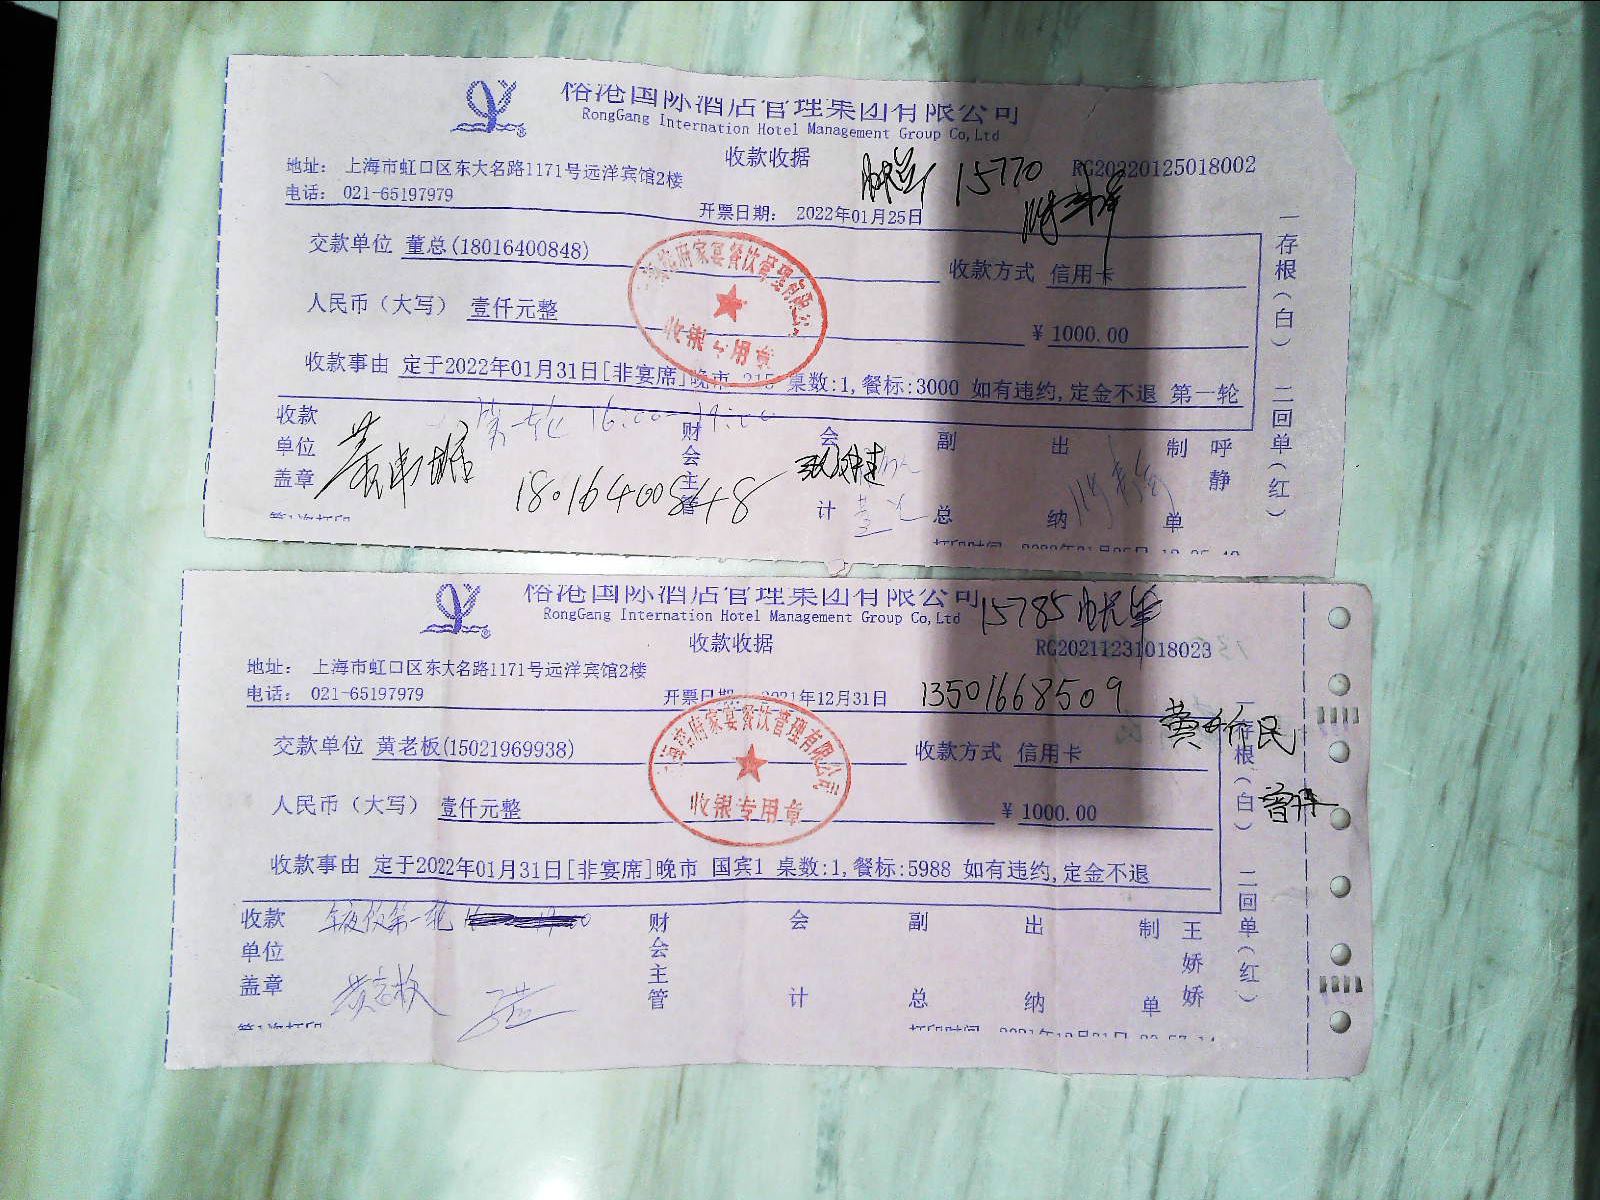 俗港国际酒店管理集团有限公司
RongGang Internation Hotel Management Group Co,Ltd
收款收据
15770
RG20220125018002
地址： 上海市虹口区东大名路1171号远洋宾馆2楼
电话： 021-65197979
开票日期： 2022年01月25日
交款单位 董总(18016400848)
收款方式 信用卡
人民币（大写） 壹仟元整
¥ 1000.00
收款事由 定于2022年01月31日[非宴席]晚市 215 桌数:1,餐标:3000 如有违约,定金不退 第一轮
第一轮 16:00-19:00
收款单位盖章
18016400848
财会主管
会计
副总
出纳
制单
呼静
一存根（白） 二回单（红）
家宴餐饮管理有限公
收银专用章
俗港国际酒店管理集团有限公司
RongGang Internation Hotel Management Group Co,Ltd
15785
收款收据
RG20211231018023
地址： 上海市虹口区东大名路1171号远洋宾馆2楼
电话： 021-65197979
开票日期 2021年12月31日
13501668509
交款单位 黄老板(15021969938)
收款方式 信用卡
人民币（大写） 壹仟元整
¥ 1000.00
收款事由 定于2022年01月31日[非宴席]晚市 国宾1 桌数:1,餐标:5988 如有违约,定金不退
年夜饭第一轮
收款单位盖章
黄老板
财会主管
会计
副总
出纳
制单
王娇娇
一存根（白） 二回单（红）
府家宴餐饮管理有限公司
收银专用章